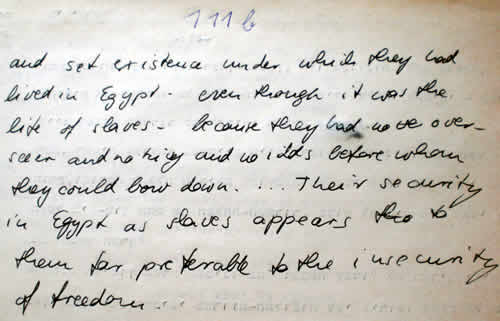 111b
and set existence under which they had
lived in Egypt - even though it was the
life of slaves - because they had no over-
seer and no king and no idols before whom
they could bow down. ... Their security
in Egypt as slaves appears to
them far preferable to the insecurity
of freedom.